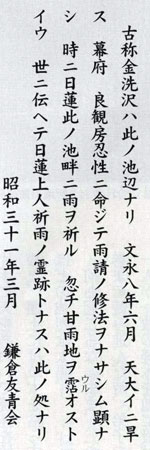 古称金洗沢ハ此ノ池辺ナリ　文永八年六月　天大イニ旱
ス　幕府　良観房忍性ニ命ジテ雨請ノ修法ヲナサシム顕ナ
シ　時ニ日蓮此ノ池畔ニ雨ヲ祈ル　忽チ甘雨地ヲ霑オスト
ウル
イウ　世ニ伝ヘテ日蓮上人祈雨ノ霊跡トナスハ此ノ処ナリ
昭和三十一年三月　鎌倉友青会